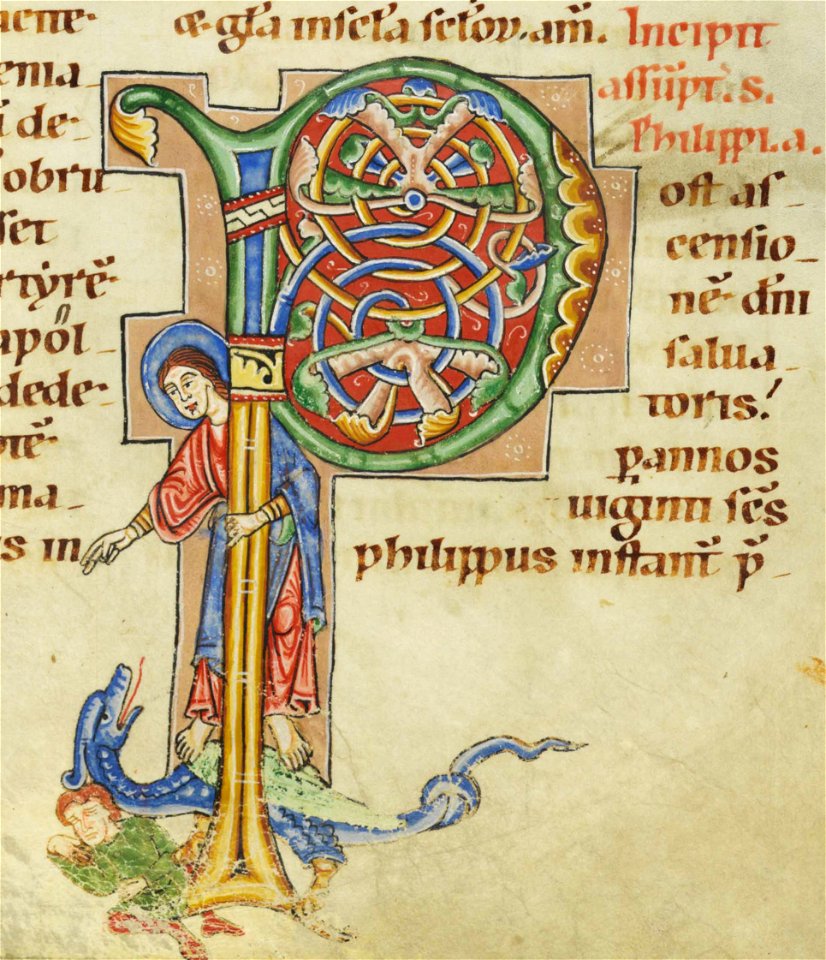 enia
de-
obru-
set
rtyrē
apol̄
dede-
ma-
s in
gła in secła secłoꝝ. am̄. Incipit
assūpt. s.
Philippi. a.
Post as-
censio-
nē dn̄i
salua-
toris.
p annos
uiginti scs̄
philippus instant̄ p̄-